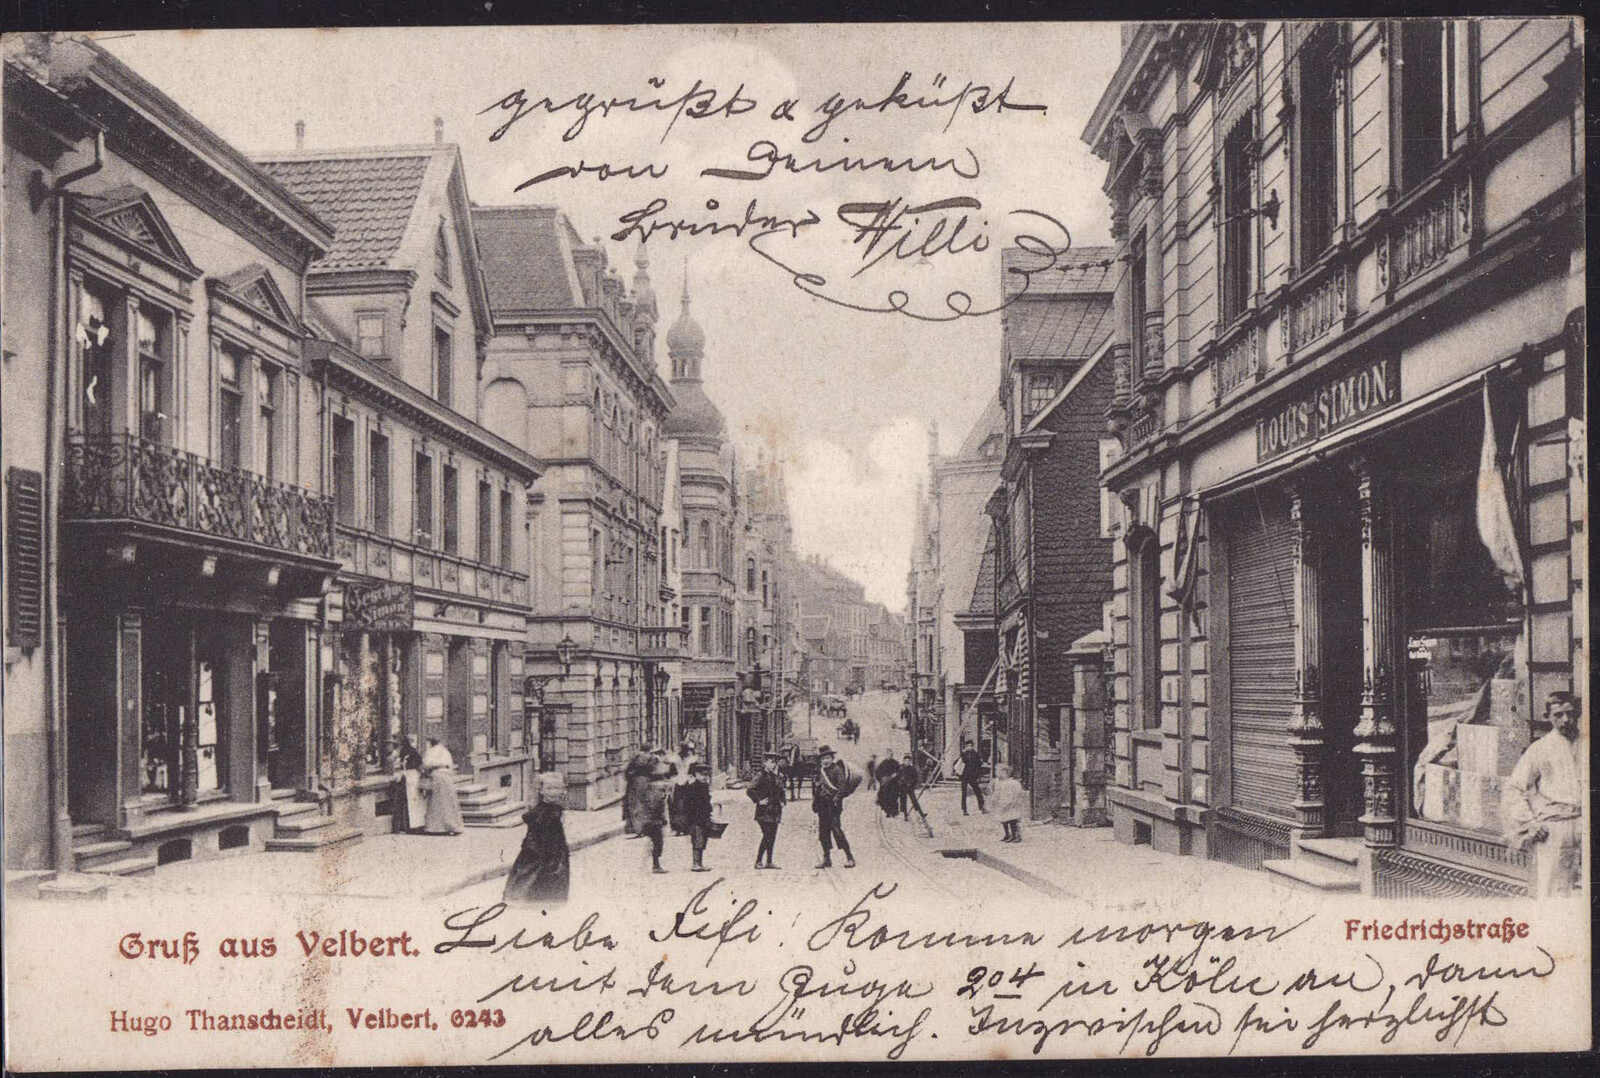 Liebe Fifi! Komme morgen
mit dem Zuge 2⁰⁴ in Köln an, dann
alles mündlich. Inzwischen sei herzlichst
gegrüßt & geküßt
von Deinem
Bruder Willi
LOUIS SIMON.
Geschw.
Simon
Gruß aus Velbert.
Friedrichstraße
Hugo Thanscheidt, Velbert. 6243